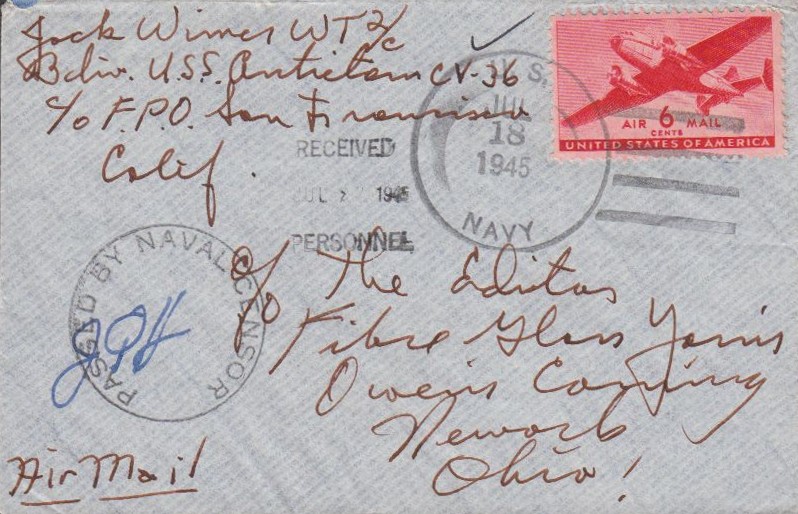 Jack Wimer WT 2/c
B div. U.S.S. Antietam CV-36
c/o F.P.O. San Francisco
Calif.
U.S.
JUL
18
1945
NAVY
AIR 6 MAIL
CENTS
UNITED STATES OF AMERICA
RECEIVED
JUL 1945
PERSONNEL
PASSED BY NAVAL CENSOR
JPH
c/o The Editor
Fibre Glass Yarns
Owens Corning
Newark
Ohio!
Air Mail